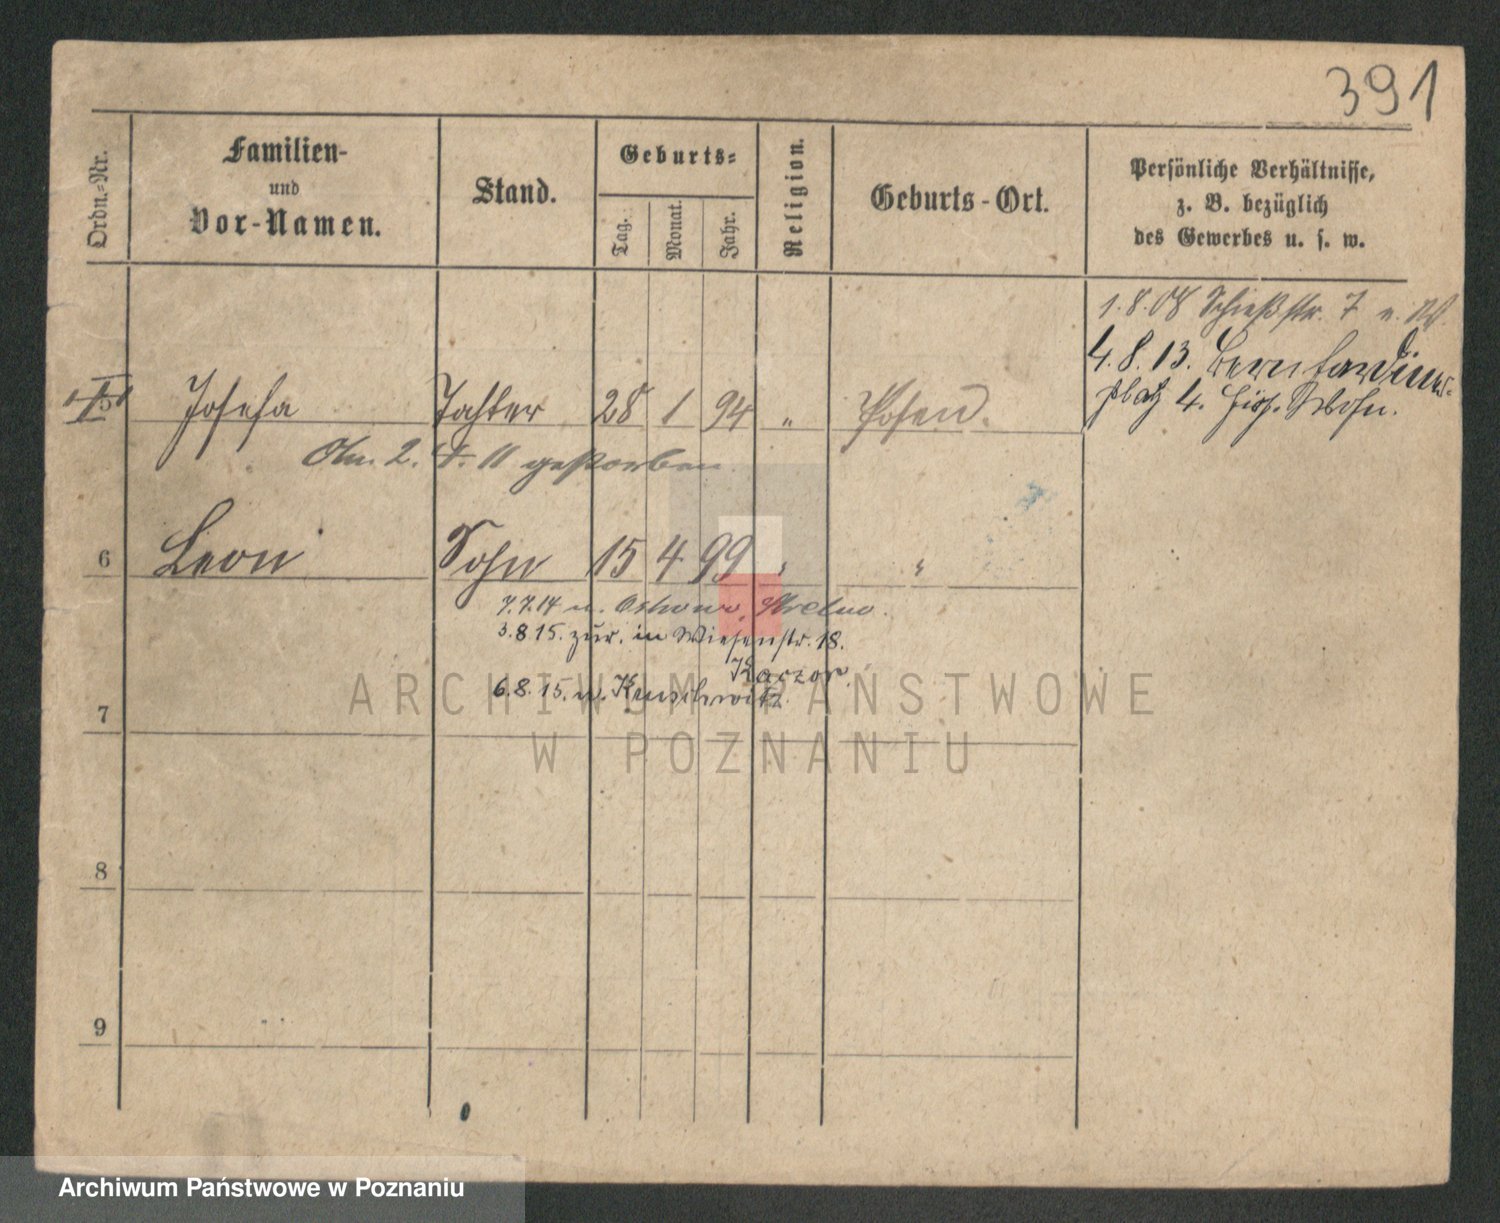 391
Ordn.-Nr.
Familien-
und
Vor-Namen.
Stand.
Geburts-
Tag.
Monat.
Jahr.
Religion.
Geburts-Ort.
Persönliche Verhältnisse,
z. B. bezüglich
des Gewerbes u. s. w.
1.8.08 Schießstr. 7 u. W.
4.8.13. Bernhardiner-
platz 4. Wohn.
5 Josefa Tochter 28 1 94 " Posen.
Am 2. 4. 11 gestorben.
6 Leon Sohn 15 4 99 " "
7.7.14 n. Ostrowo, Strelno.
3.8.15. zur. in Wiesenstr. 18.
Kaczor.
6.8.15. n. Kruschwitz
7
8
9
ARCHIWUM PAŃSTWOWE
W POZNANIU
Archiwum Państwowe w Poznaniu